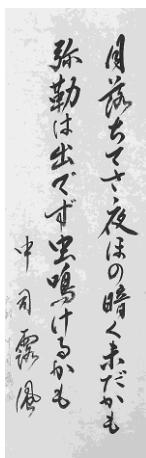 月落ちてさ夜ほの暗く未だかも
弥勒は出でず虫鳴けるかも
中司露風